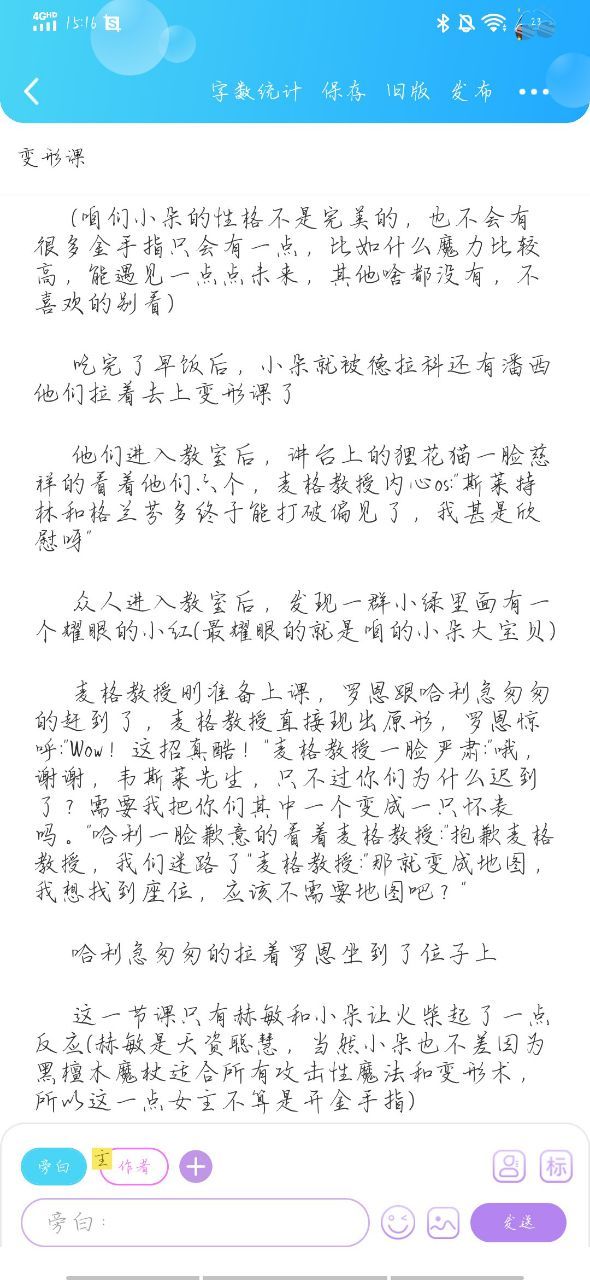 4GHD 15:16 23
字数统计 保存 旧版 发布
变形课
(咱们小朵的性格不是完美的，也不会有
很多金手指只会有一点，比如什么魔力比较
高，能遇见一点点未来，其他啥都没有，不
喜欢的别看)
吃完了早饭后，小朵就被德拉科还有潘西
他们拉着去上变形课了
他们进入教室后，讲台上的狸花猫一脸慈
祥的看着他们六个，麦格教授内心os:"斯莱特
林和格兰芬多终于能打破偏见了，我甚是欣
慰呀"
众人进入教室后，发现一群小绿里面有一
个耀眼的小红(最耀眼的就是咱的小朵大宝贝)
麦格教授刚准备上课，罗恩跟哈利急匆匆
的赶到了，麦格教授直接现出原形，罗恩惊
呼:"Wow！这招真酷！"麦格教授一脸严肃:"哦，
谢谢，韦斯莱先生，只不过你们为什么迟到
了？需要我把你们其中一个变成一只怀表
吗。"哈利一脸歉意的看着麦格教授:"抱歉麦格
教授，我们迷路了"麦格教授:"那就变成地图，
我想找到座位，应该不需要地图吧？"
哈利急匆匆的拉着罗恩坐到了位子上
这一节课只有赫敏和小朵让火柴起了一点
反应(赫敏是天资聪慧，当然小朵也不差因为
黑檀木魔杖适合所有攻击性魔法和变形术，
所以这一点女主不算是开金手指)
旁白 主 作者 标
旁白： 发送